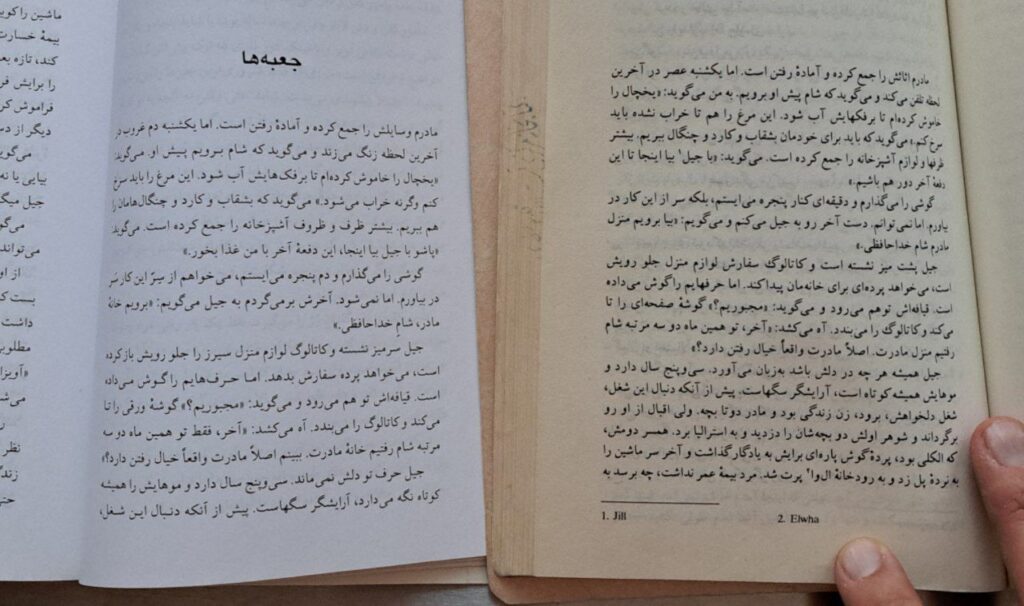 مادرم اثاثش را جمع کرده و آمادهٔ رفتن است. اما یکشنبه عصر در آخرین
لحظه تلفن می‌کند و می‌گوید که شام پیش او برویم. به من می‌گوید: «یخچال را
خاموش کرده‌ام تا برفکهایش آب شود. این مرغ را هم تا خراب نشده باید
سرخ کنم.» می‌گوید که باید برای خودمان بشقاب و کارد و چنگال ببریم. بیشتر
ظرفها و لوازم آشپزخانه را جمع کرده است. می‌گوید: «با جیل۱ بیا اینجا تا این
دفعهٔ آخر دور هم باشیم.»
گوشی را می‌گذارم و دقیقه‌ای کنار پنجره می‌ایستم، بلکه سر از این کار در
بیاورم. اما نمی‌توانم. دست آخر رو به جیل می‌کنم و می‌گویم: «بیا برویم منزل
مادرم شام خداحافظی.»
جیل پشت میز نشسته است و کاتالوگ سفارش لوازم منزل جلو رویش
است، می‌خواهد پرده‌ای برای خانه‌مان پیدا کند. اما حرفهایم را گوش می‌داده
است. قیافه‌اش تو هم می‌رود و می‌گوید: «مجبوریم؟» گوشهٔ صفحه‌ای را تا
می‌کند و کاتالوگ را می‌بندد. آه می‌کشد: «آخر، تو همین ماه دو سه مرتبه شام
رفتیم منزل مادرت. اصلاً مادرت واقعاً خیال رفتن دارد؟»
جیل همیشه هر چه در دلش باشد به‌زبان می‌آورد. سی‌وپنج سال دارد و
موهایش همیشه کوتاه است، آرایشگر سگهاست. پیش از آنکه دنبال این شغل،
شغل دلخواهش، برود، زن زندگی بود و مادر دوتا بچه. ولی اقبال از او رو
برگرداند و شوهر اولش دو بچه‌شان را دزدید و به استرالیا برد. همسر دومش،
که الکلی بود، پردهٔ گوش پاره‌ای برایش به یادگار گذاشت و آخر سر ماشین را
به نردهٔ پل زد و به رودخانهٔ ال‌وا۲ پرت شد. مرد بیمهٔ عمر نداشت، چه برسد به
1. Jill
2. Elwha
جعبه‌ها
مادرم وسایلش را جمع کرده و آمادهٔ رفتن است. اما یکشنبه دم غروب در
آخرین لحظه زنگ می‌زند و می‌گوید که شام برویم پیش او. می‌گوید:
«یخچال را خاموش کرده‌ام تا برفک‌هایش آب شود. این مرغ را باید سرخ
کنم وگرنه خراب می‌شود.» می‌گوید که بشقاب و کارد و چنگال‌هامان را
هم ببریم. بیشتر ظرف و ظروف آشپزخانه را جمع کرده است. می‌گوید:
«پاشو با جیل بیا اینجا، این دفعهٔ آخر با من غذا بخور.»
گوشی را می‌گذارم و دم پنجره می‌ایستم، می‌خواهم از سِرّ این کار سَر
در بیاورم. اما نمی‌شود. آخرش برمی‌گردم به جیل می‌گویم: «برویم خانهٔ
مادر، شامِ خداحافظی.»
جیل سرمیز نشسته و کاتالوگ لوازم منزل سیرز را جلو رویش باز کرده
است، می‌خواهد پرده سفارش بدهد. اما حرف‌هایم را گوش می‌داده
است. قیافه‌اش تو هم می‌رود و می‌گوید: «مجبوریم؟» گوشهٔ ورقی را تا
می‌کند و کاتالوگ را می‌بندد. آه می‌کشد: «آخر، فقط تو همین ماه دو سه
مرتبه شام رفتیم خانهٔ مادرت. ببینم اصلاً مادرت واقعاً خیال رفتن دارد؟»
جیل حرف تو دلش نمی‌ماند. سی‌وپنج سال دارد و موهایش را همیشه
کوتاه نگه می‌دارد، آرایشگر سگهاست. پیش از آنکه دنبال این شغل،
ماشین را کوبید
بیمهٔ خسارت
کند، تازه بعد
را برایش
فراموش
دیگر از
می‌گوید
بیایی یا نه
جیل
می‌گوید
می‌تواند
از او
پست
داشت
مطلوبی
می‌شد
نظر
زندگی
حتی